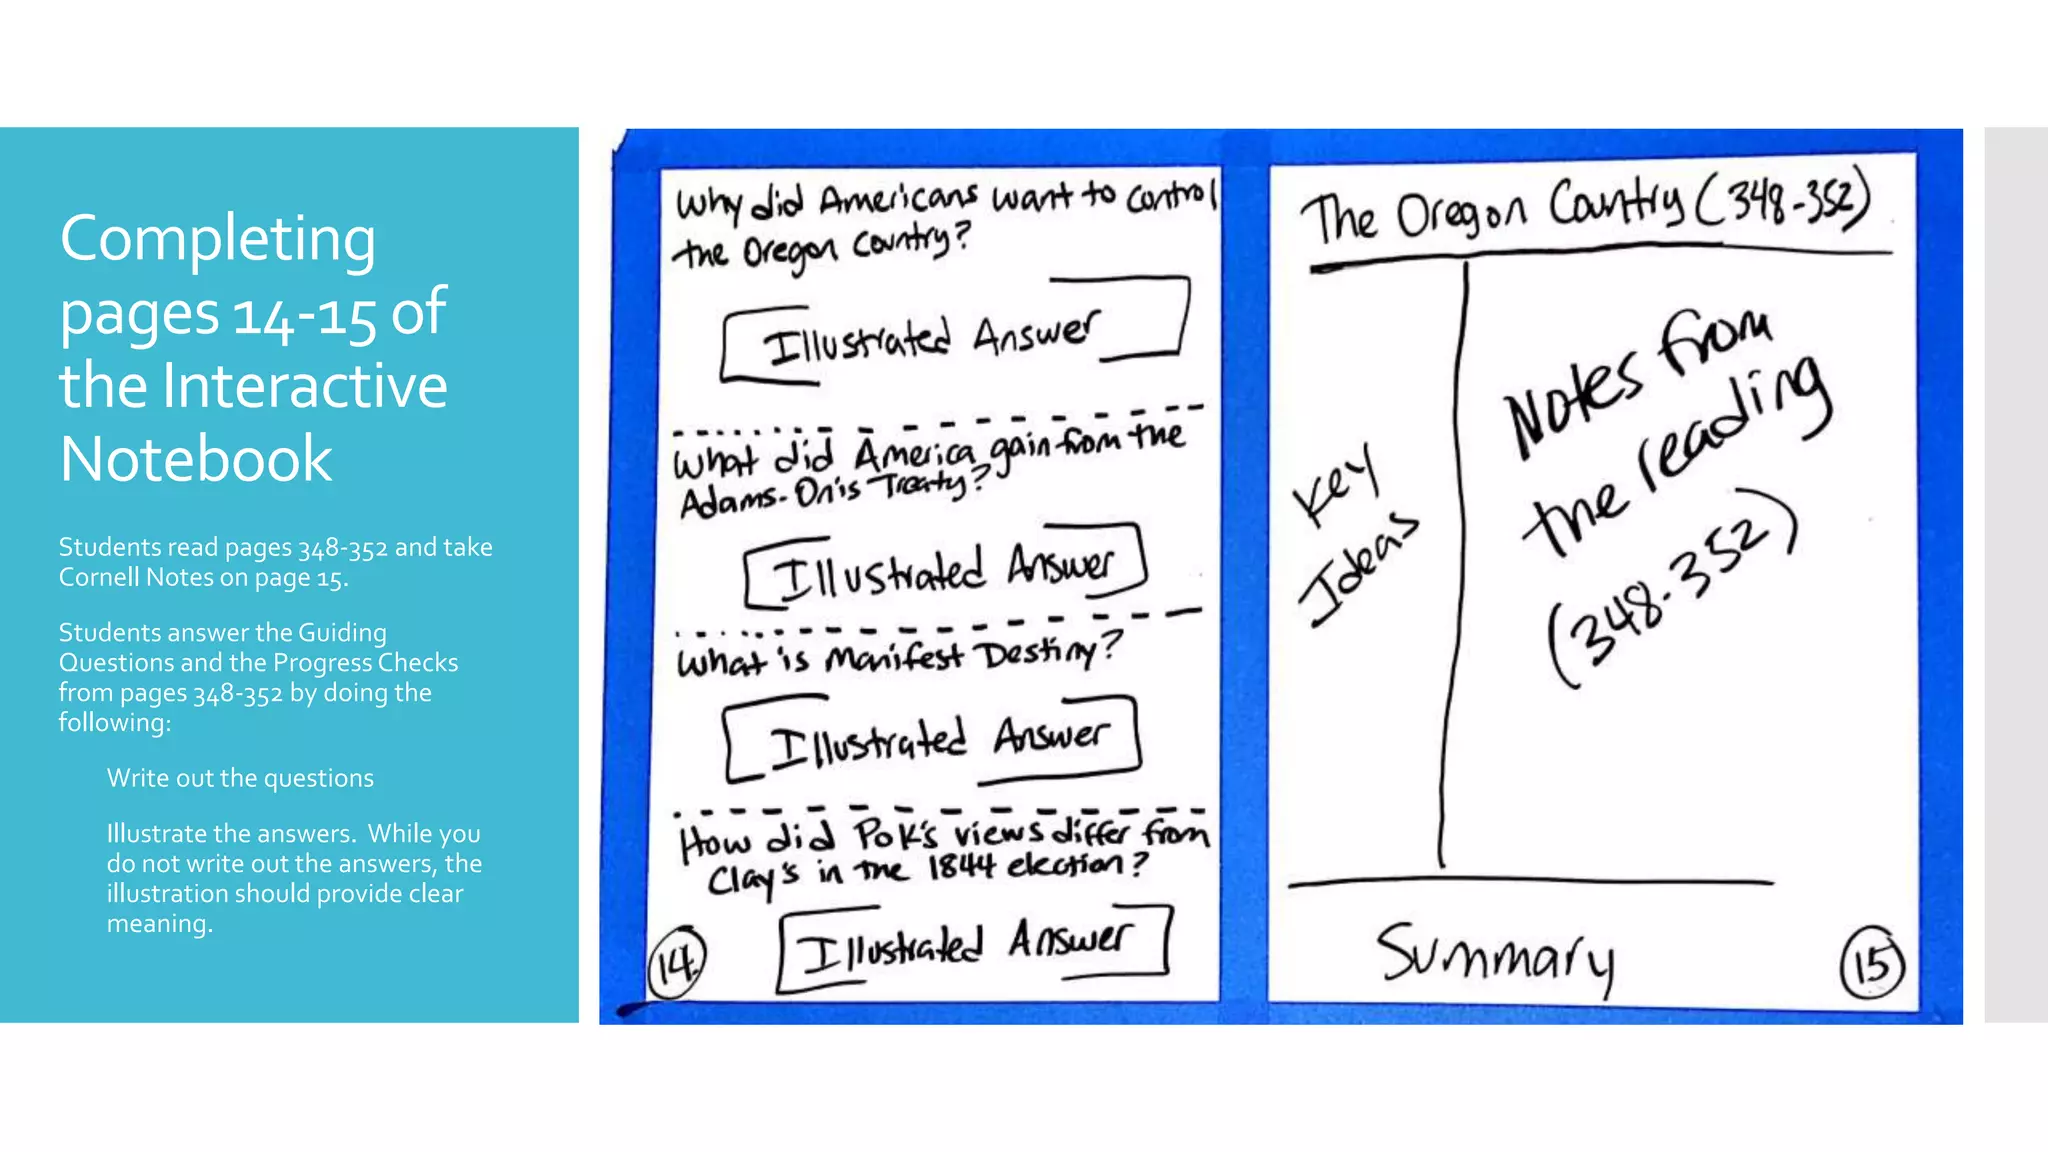 Completing
pages 14-15 of
the Interactive
Notebook
Students read pages 348-352 and take
Cornell Notes on page 15.
Students answer the Guiding
Questions and the Progress Checks
from pages 348-352 by doing the
following:
Write out the questions
Illustrate the answers.  While you
do not write out the answers, the
illustration should provide clear
meaning.
Why did Americans want to control
the Oregon Country?
Illustrated Answer
What did America gain from the
Adams-Onis Treaty?
Illustrated Answer
What is Manifest Destiny?
Illustrated Answer
How did Polk's views differ from
Clay's in the 1844 election?
Illustrated Answer
14
The Oregon Country (348-352)
Key
Ideas
Notes from
the reading
(348-352)
Summary
15